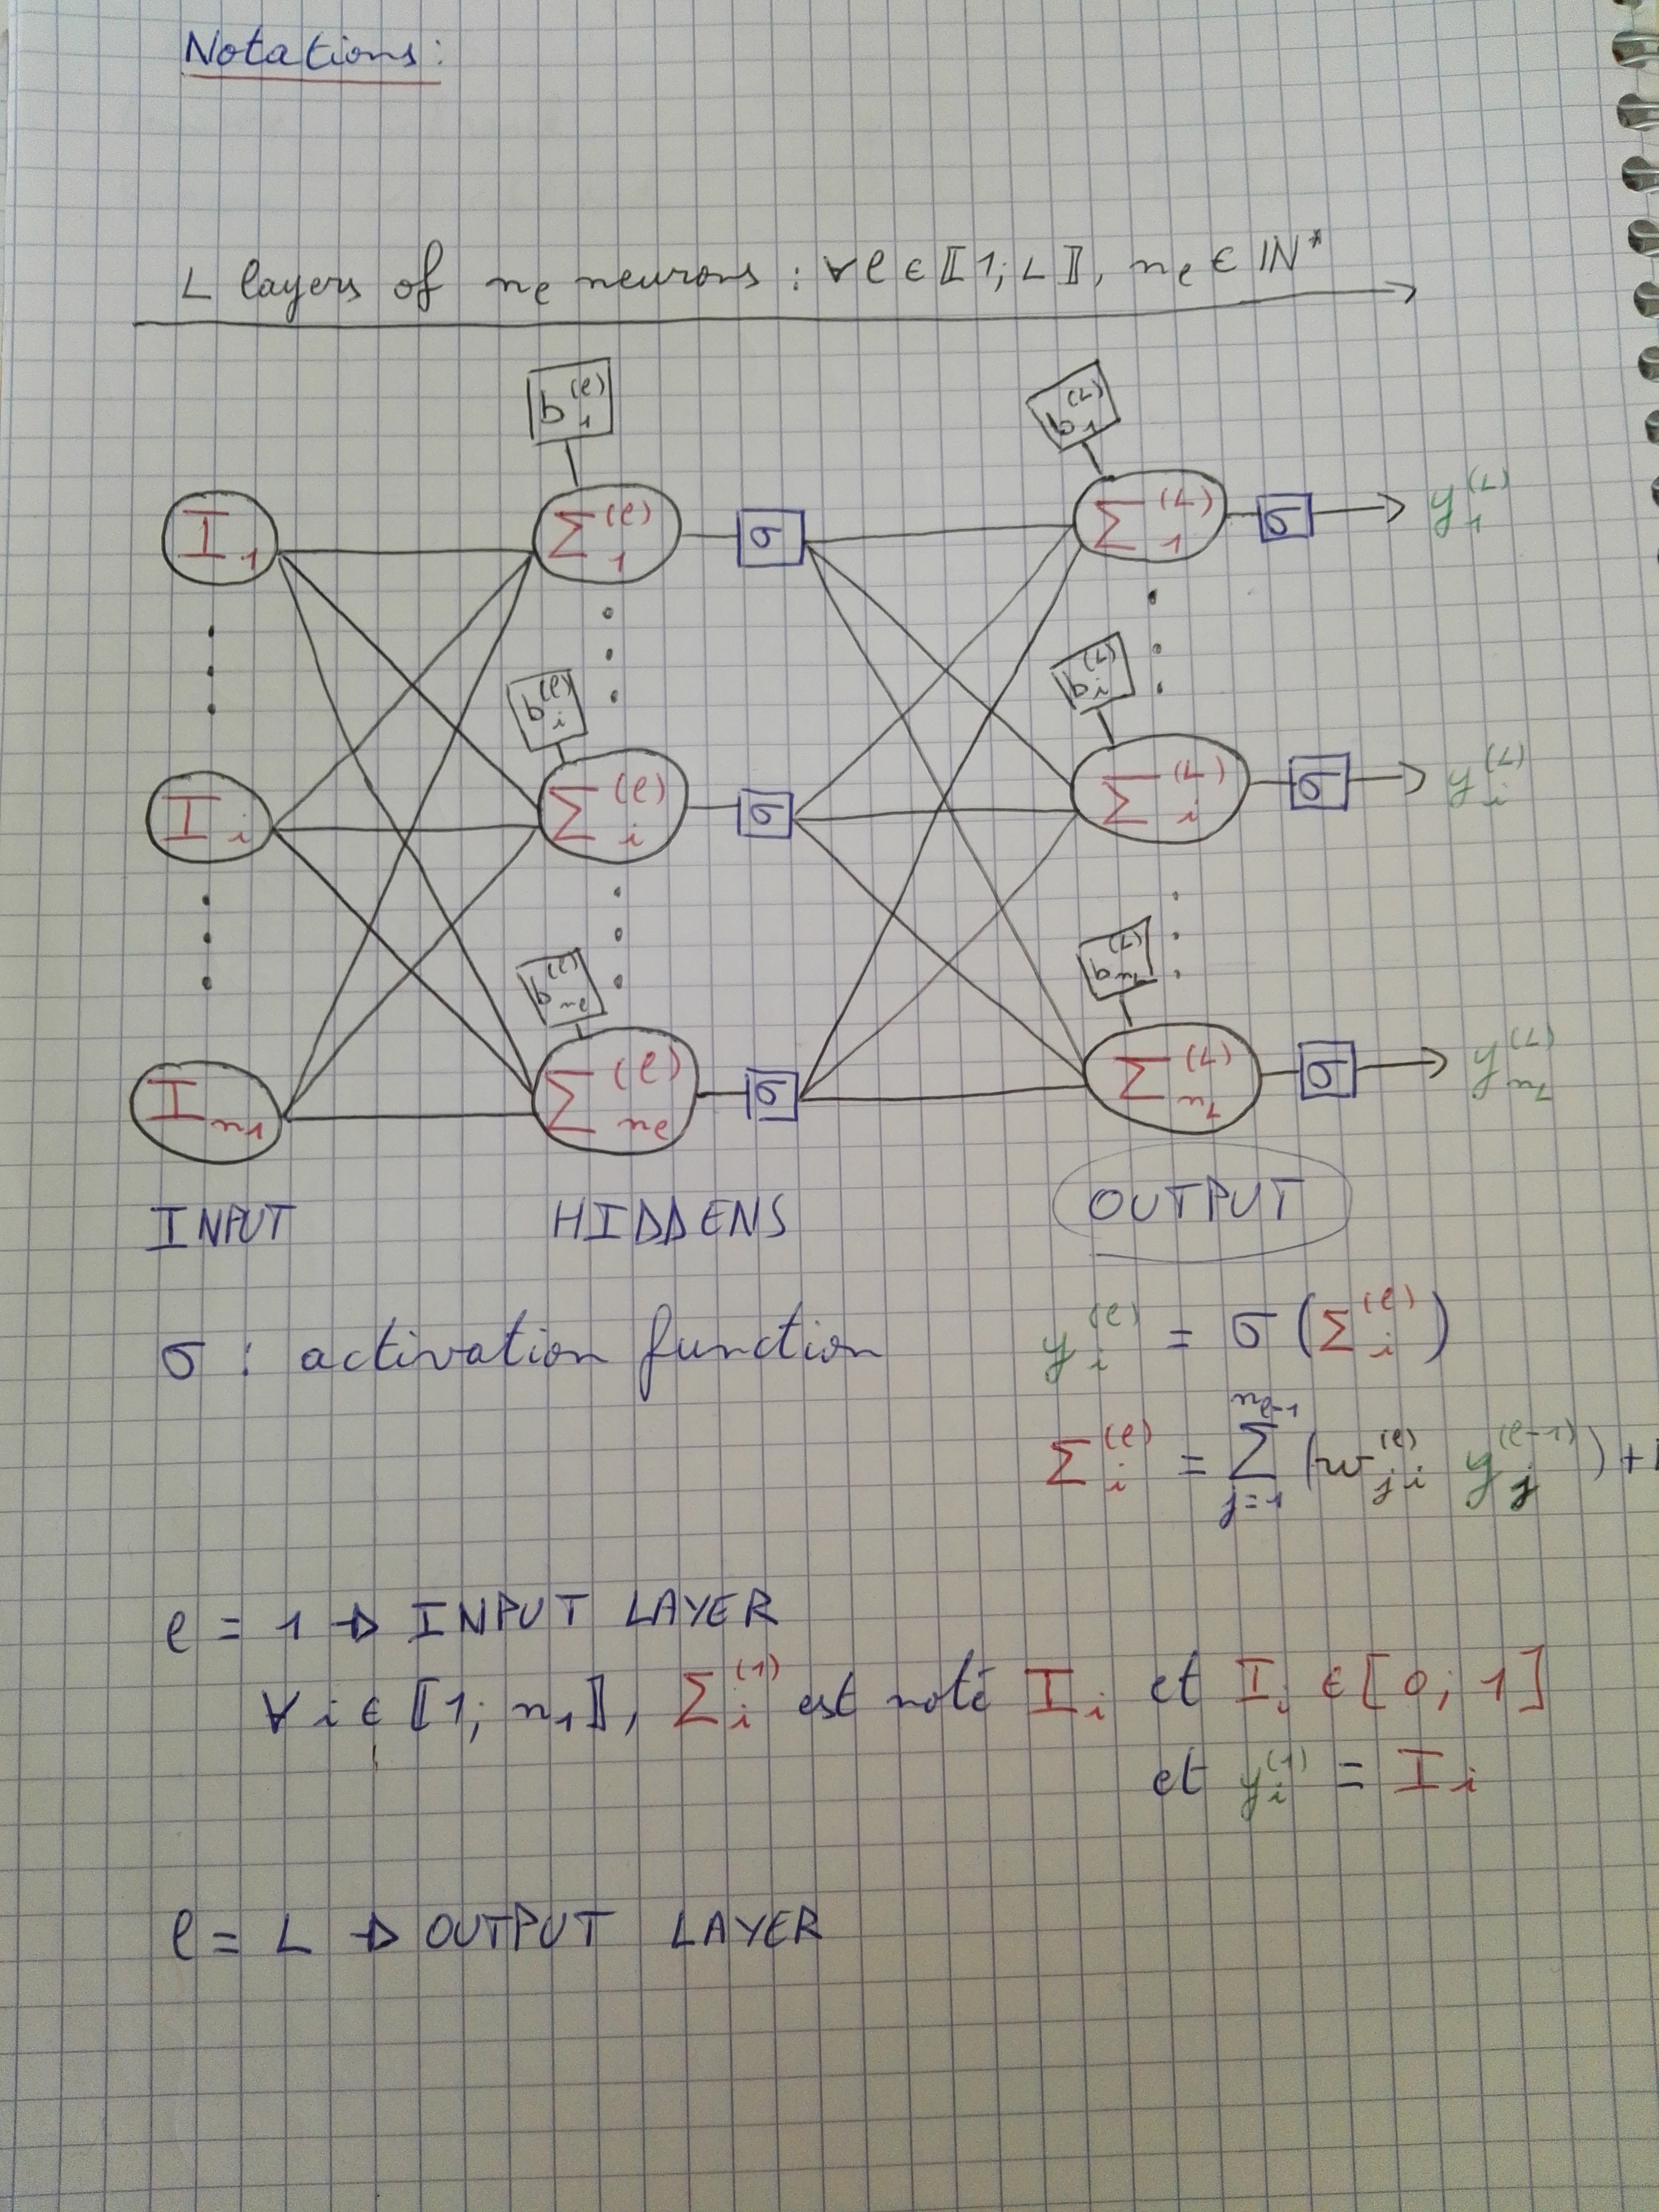 Notations:
L layers of nₗ neurons : ∀ℓ ∈ ⟦1; L⟧, nₗ ∈ ℕ*
b₁^(ℓ) b₁^(L)
I₁ Σ₁^(ℓ) σ Σ₁^(L) σ y₁^(L)
bᵢ^(ℓ) bᵢ^(L)
Iᵢ Σᵢ^(ℓ) σ Σᵢ^(L) σ yᵢ^(L)
b_{nₗ}^(ℓ) b_{n_L}^(L)
I_{n₁} Σ_{nₗ}^(ℓ) σ Σ_{n_L}^(L) σ y_{n_L}^(L)
INPUT HIDDENS OUTPUT
σ : activation function yᵢ^(ℓ) = σ(Σᵢ^(ℓ))
Σᵢ^(ℓ) = Σ_{j=1}^{n_{ℓ-1}} (w_{ji}^(ℓ) y_j^(ℓ-1)) +
ℓ = 1 → INPUT LAYER
∀ i ∈ ⟦1; n₁⟧, Σᵢ^(1) est noté Iᵢ et Iᵢ ∈ [0; 1]
et yᵢ^(1) = Iᵢ
ℓ = L → OUTPUT LAYER